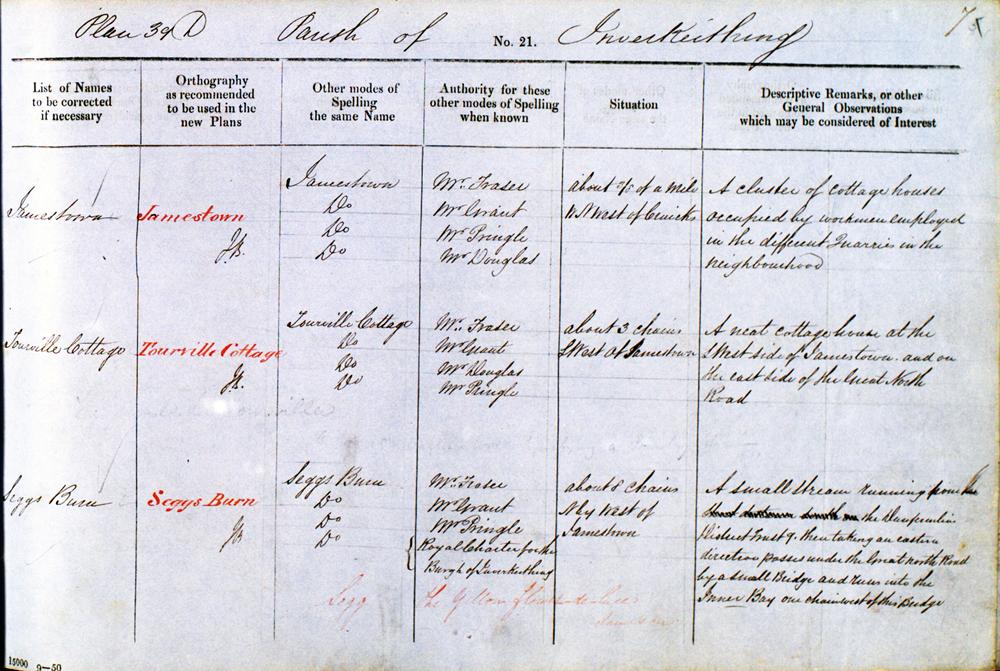 Plan 39 D Parish of No. 21. Inverkeithing 75
List of Names
to be corrected
if necessary
Orthography
as recommended
to be used in the
new Plans
Other modes of
Spelling
the same Name
Authority for these
other modes of Spelling
when known
Situation
Descriptive Remarks, or other
General Observations
which may be considered of Interest
Jamestown
Jamestown
Jamestown
Do
Do
Do
Mr. Fraser
Mr Grant
Mr Pringle
Mr Douglas
about of a mile
West of
A cluster of cottage houses
occupied by workmen employed
in the different Quarries in the
neighbourhood
Tourville Cottage
Tourville Cottage
Tourville Cottage
Do
Do
Do
Mr. Fraser
Mr Grant
Mr Douglas
Mr Pringle
about 3 chains
SWest of Jamestown
A neat cottage house at the
SWest side of Jamestown and on
the east side of the Great North
Road
Seggs Burn
Seggs Burn
Seggs Burn
Do
Do
Do
Mr. Fraser
Mr Grant
Mr Pringle
Royal Charter for the
Burgh of Inverkeithing
about 8 chains
Nly West of
Jamestown
A small stream running from the
the Dunfermline
District Trust 9. then taking an eastern
direction passes under the Great north Road
by a small Bridge and runs into the
Inner Bay one chain west of this Bridge
Segg The Yellow flower-de-luce
Jamieson
15000 9—50